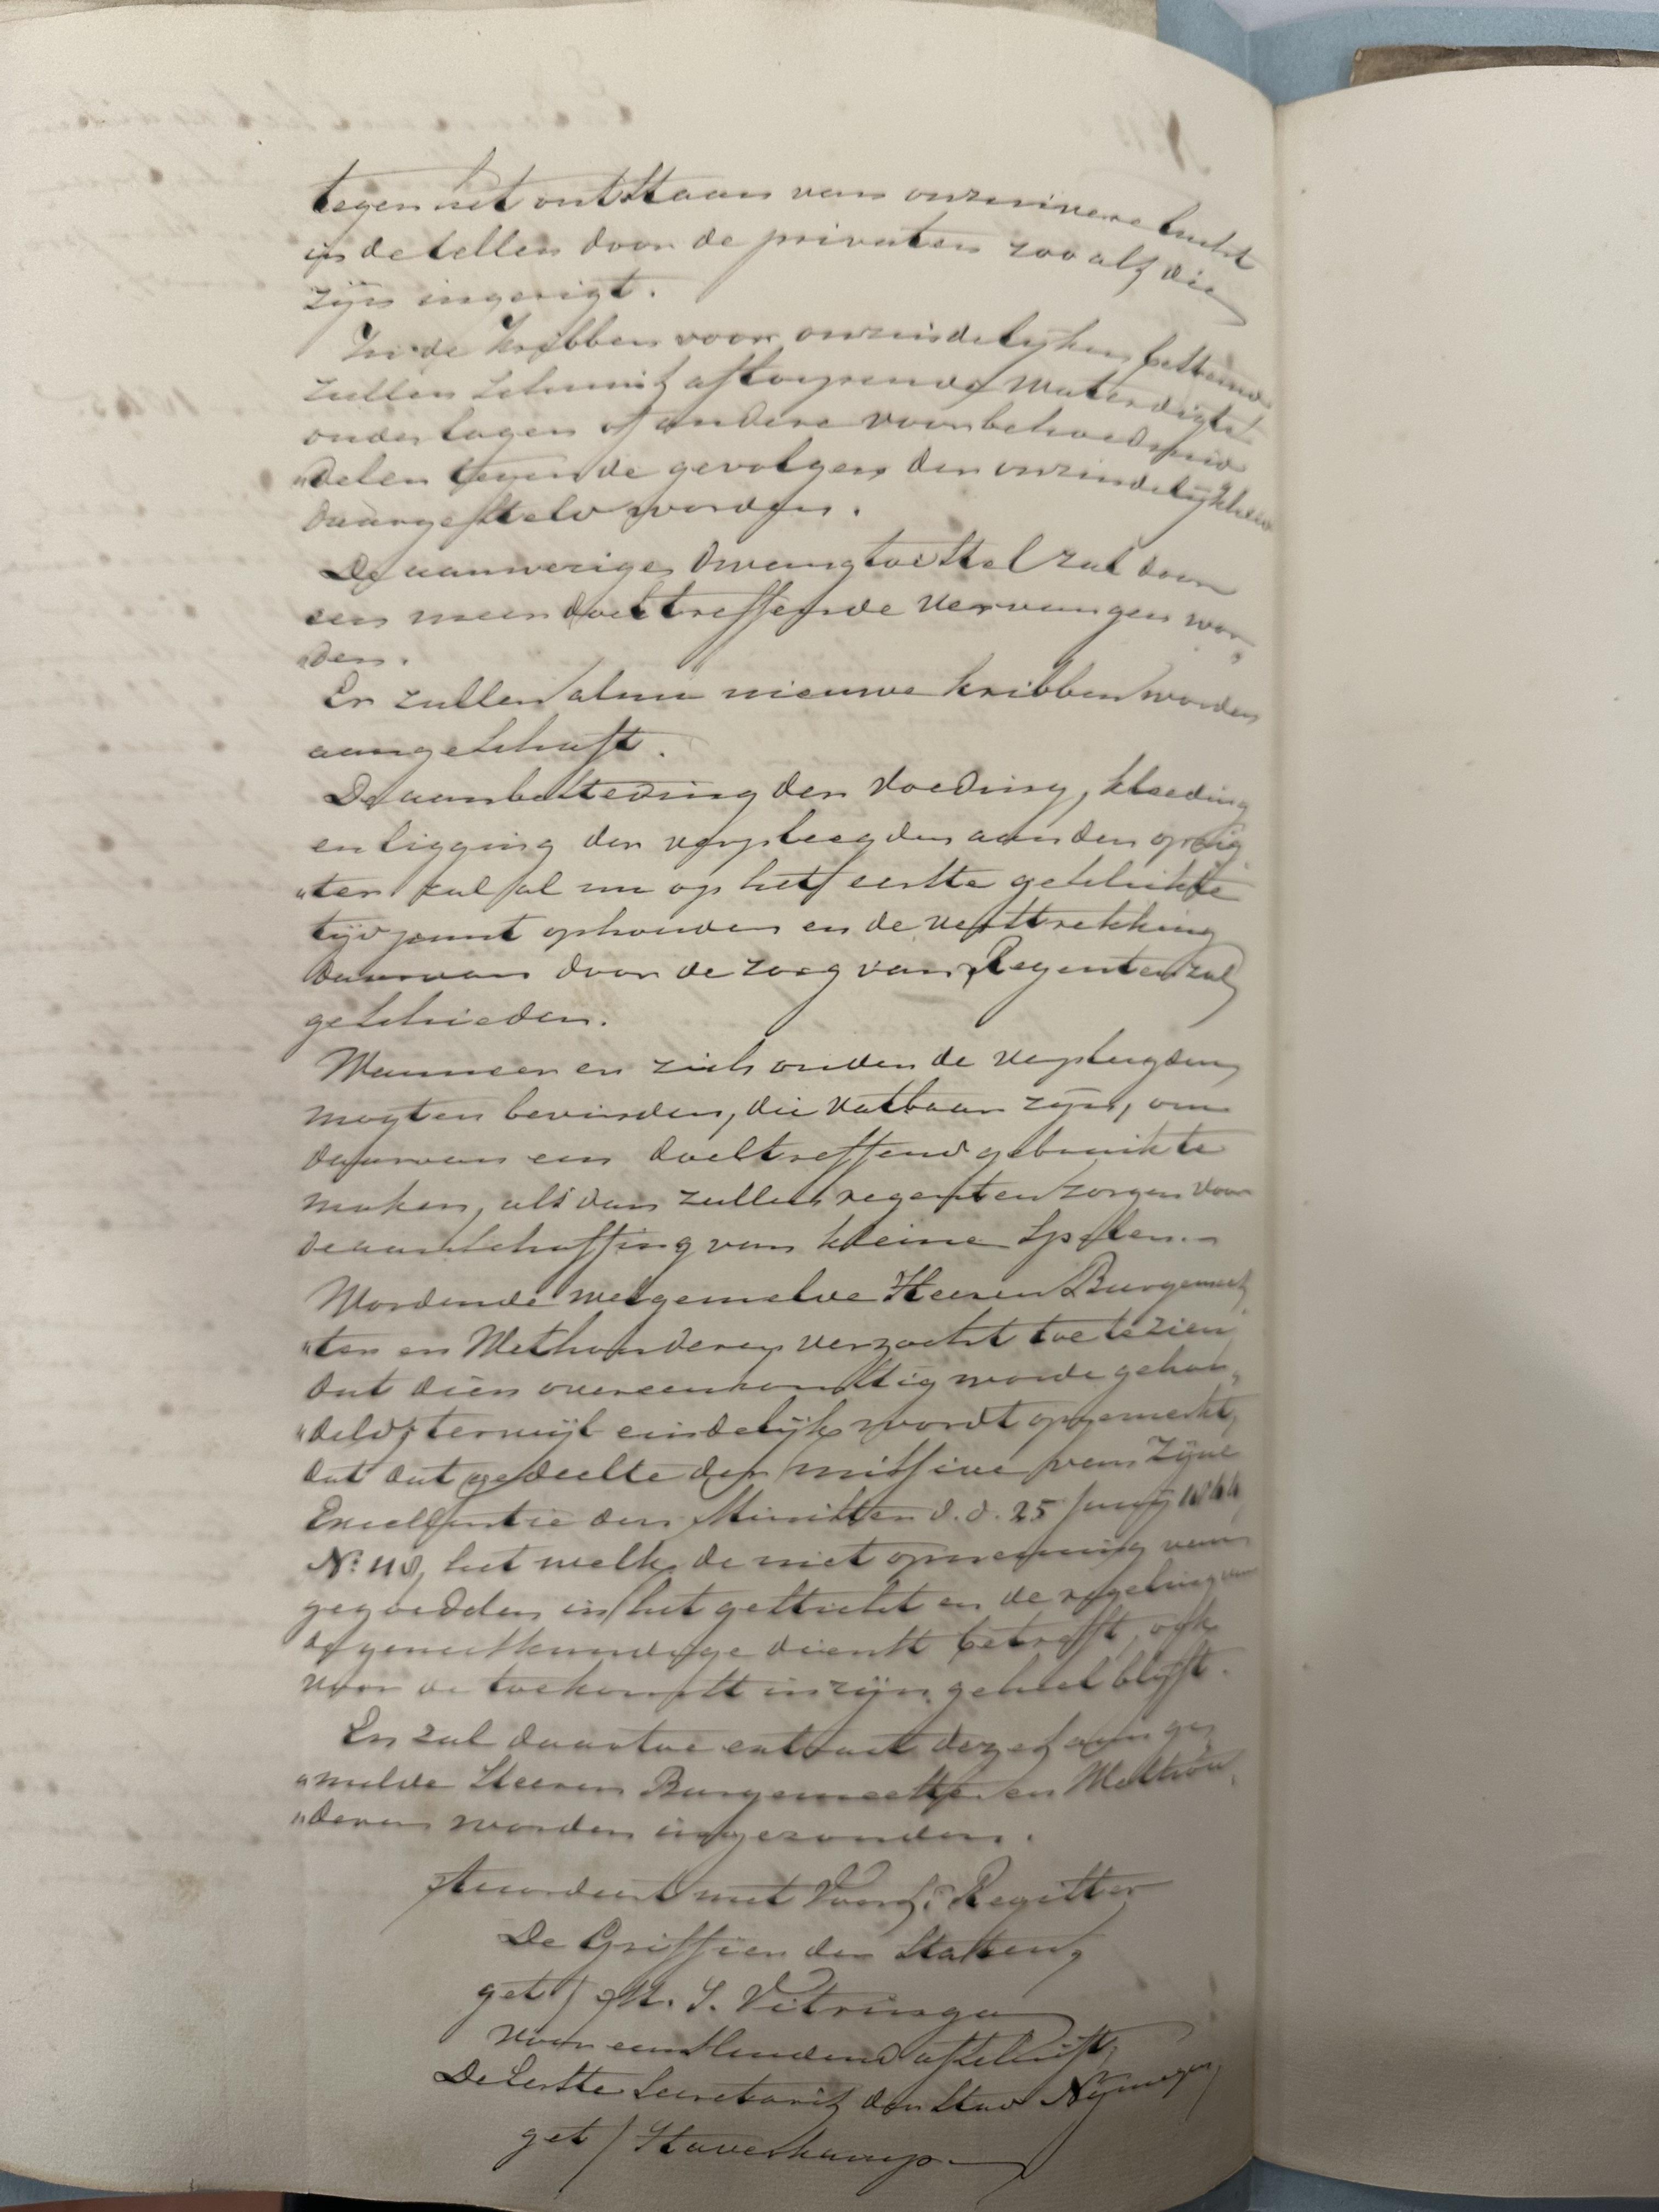 tegen het ontstaan van onzuivere lucht
in de cellen door de privaten zoo als die
zijn ingerigt.
In de kribben voor onzindelijken bestemd
zullen schuins afloopende waterdigte
onderlagen of andere voorbehoedmid
„delen tegen de gevolgen der onzindelijkheid
daargesteld worden.
De aanwezige dwangtoestel zal door
een meer doeltreffende vervangen wor„
„den.
Er zullen alme nieuwe kribben worden
aangeschaft.
De aanbesteding der voeding, kleeding
en ligging der verpleegden aan den opzig
„ter zal al nu op het eerste geschikte
tijdpunt ophouden en de verstrekking
daarvan door de zorg van Regenten zal
geschieden.
Wanneer er zich onder de verpleegden
mogten bevinden, die vatbaar zijn, om
daarvan een doeltreffend gebruik te
maken, als dan zullen regenten zorgen voor
de aanschaffing van kleine spelen.
Wordende welgemelde Heeren Burgemees
„ter en Wethouderen verzocht toe te zien
dat dien overeenkomstig worde gehan„
„deld; terwijl eindelijk wordt opgemerkt,
dat dat gedeelte der missive van Zijne
Excellentie den Minister d.d. 25 Junij 1844
No: 110, het welk de niet opneming van
gegoedden in het gesticht en de regeling van
de geneeskundige dienst betreft, ook
voor de toekomst in zijn geheel blijft.
En zal daartoe extract dezes aan ge„
„melde Heeren Burgemeester en Wethou„
„deren worden ingezonden.
Accordeert met Voors: Register
De Griffier der Staten,
get / M. S. Vitringa
voor eensluidend afschrift,
De Eerste Secretaris der Stad Nijmegen,
get / Haverkamp